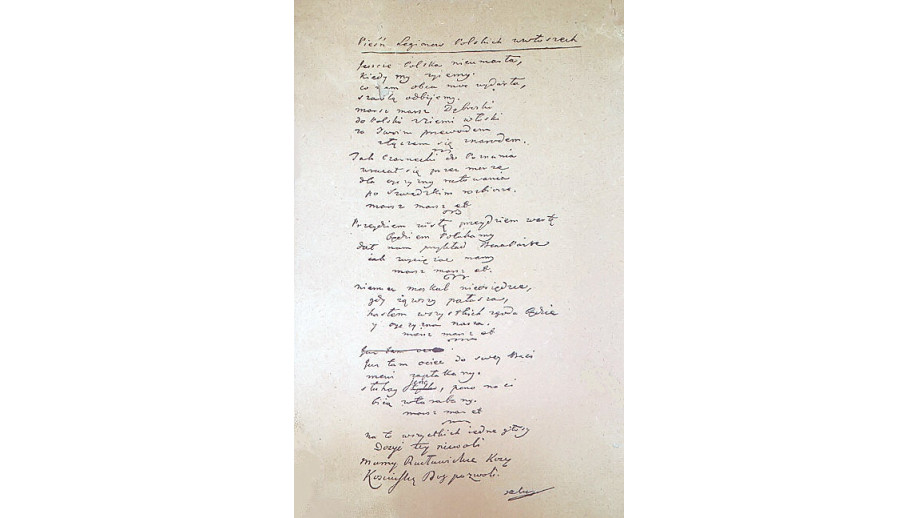 Pieśń Legionow Polskich we włoszech
Jeszcze Polska nieumarła,
kiedy my żyiemy.
co nam obca moc wydarła,
szablą odbijemy.
marsz marsz Dąbrowski
do Polski z ziemi włoski
za Twoim przewodem
złączem się z narodem.
Jak Czarnecki do Poznania
wracał się przez morze
dla oyczyzny ratowania
po Szwedzkim rozbiorze.
marsz marsz etc
Przejdziem wisłę przejdziem wartę
będziem Polakamy
dał nam przykład Bonaparte
jak zwyciężać mamy
marsz marsz etc.
niemiec moskal nieosiędzie,
gdy iąwszy pałasza,
hasłem wszystkich zgoda będzie
y oyczyzna nasza.
marsz marsz etc
Już tam
Już tam ociec do swey Basi
mówi zapłakany.
słuchay jeno, pono nasi
biią w tarabany.
marsz marsz etc
na to wszystkich iedne głosy
Dosyć tey niewoli
Mamy Racławickie Kosy
Kosciuszkę Bog pozwoli.